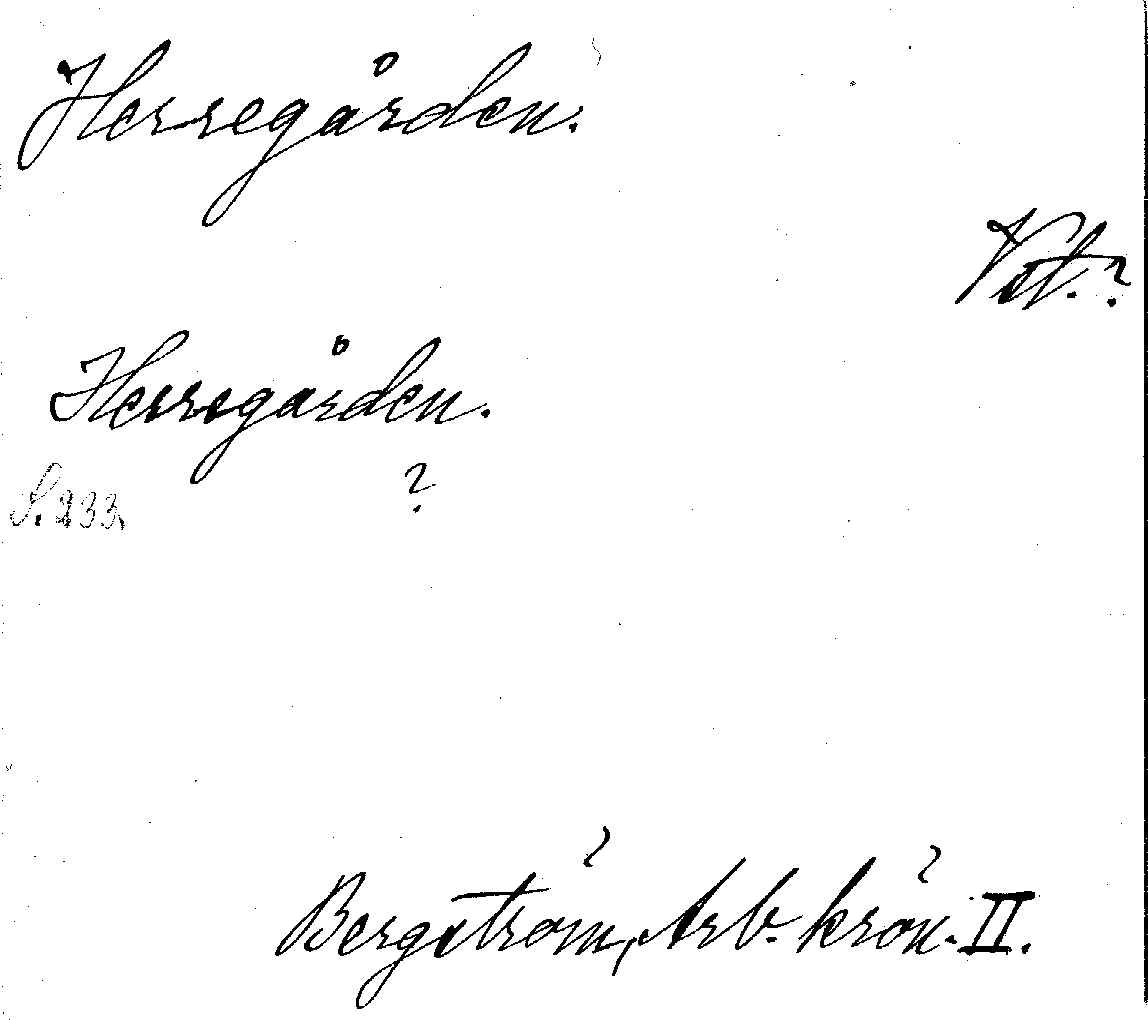 Herregården.
Vst.?
Herregården.
S. 233.
?
Bergström, Arb. krön. II.